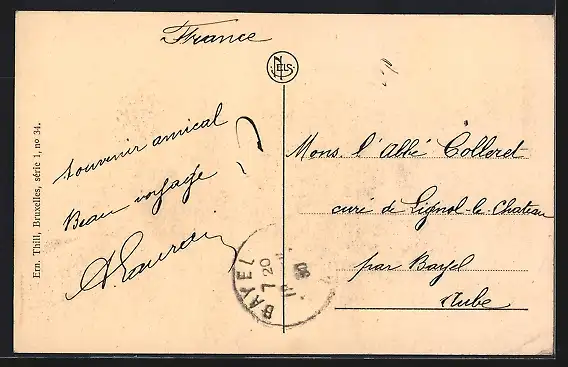 France
NELS
Ern. Thill, Bruxelles, série 1, no 34.
Souvenir amical
Beau voyage
Mons. l'Abbé Colleret
curé de Lignol-le-Chateau
par Bayel
Aube
BAYEL
20
30